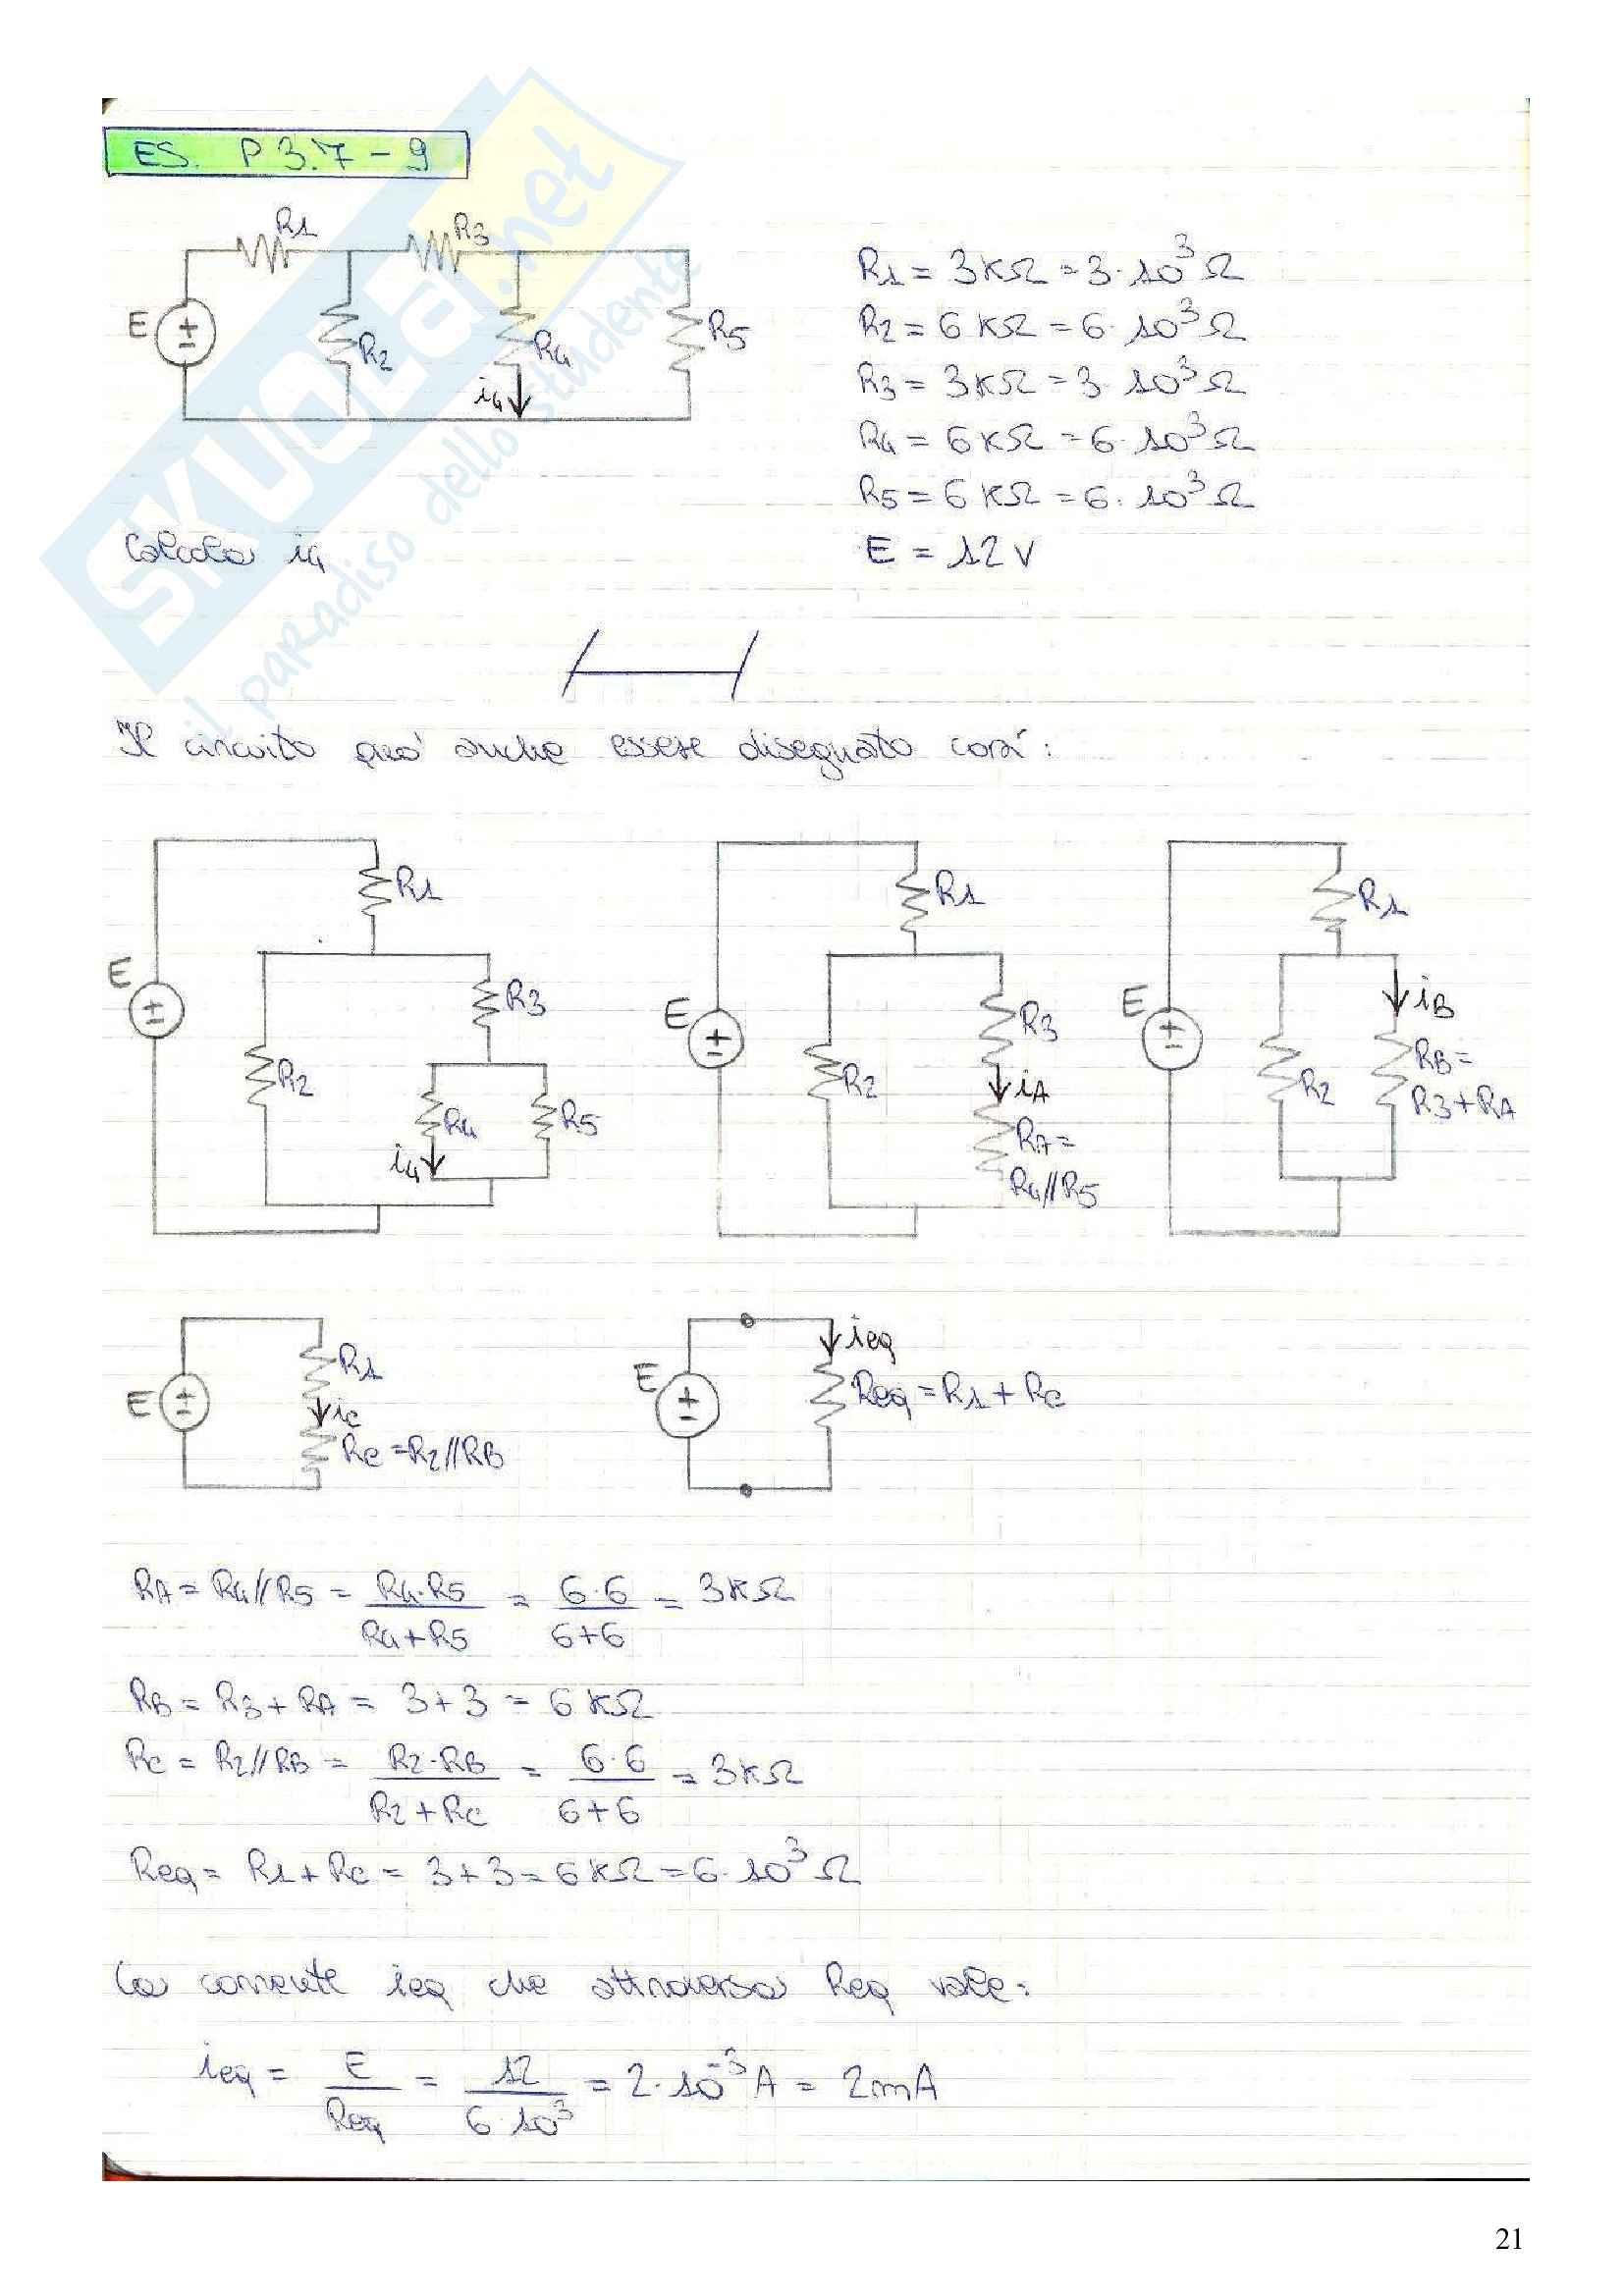 SKUOLA.net
il paradiso dello studente
ES. P 3.7 - 9
R1
R3
E
R2
R4
R5
i4
R1 = 3KΩ = 3·10³Ω
R2 = 6KΩ = 6·10³Ω
R3 = 3KΩ = 3·10³Ω
R4 = 6KΩ = 6·10³Ω
R5 = 6KΩ = 6·10³Ω
Calcola i4
E = 12V
Il circuito può anche essere disegnato così:
R1
E
R3
R2
R4
R5
i4
R1
E
R3
R2
iA
RA =
R4//R5
R1
E
iB
R2
RB =
R3+RA
R1
E
iC
RC = R2//RB
ieq
E
Req = R1 + RC
RA = R4//R5 = R4·R5 / R4+R5 = 6·6 / 6+6 = 3KΩ
RB = R3 + RA = 3+3 = 6KΩ
RC = R2//RB = R2·RB / R2+RC = 6·6 / 6+6 = 3KΩ
Req = R1 + RC = 3+3 = 6KΩ = 6·10³Ω
La corrente ieq che attraversa Req vale:
ieq = E / Req = 12 / 6·10³ = 2·10⁻³A = 2mA
21